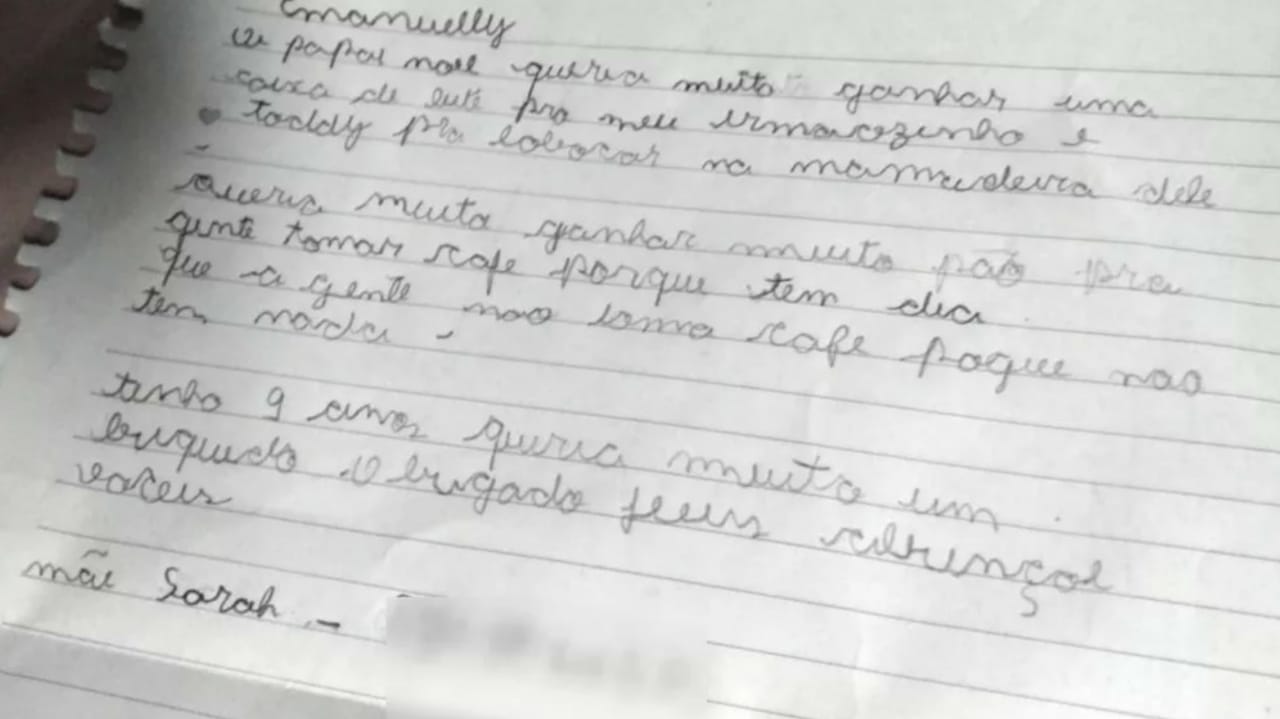 Emanuelly
oi papai noel queria muito ganhar uma
caixa de leite pro meu irmaozinho e
toddy pra colocar na mamadeira dele
queria muito ganhar muito pão pra
gente tomar cafe porque tem dia
que a gente nao toma cafe poque nao
tem nada
tenho 9 anos queria muito um
briquedo obrigado jesus
voceis
mãe Sarah -